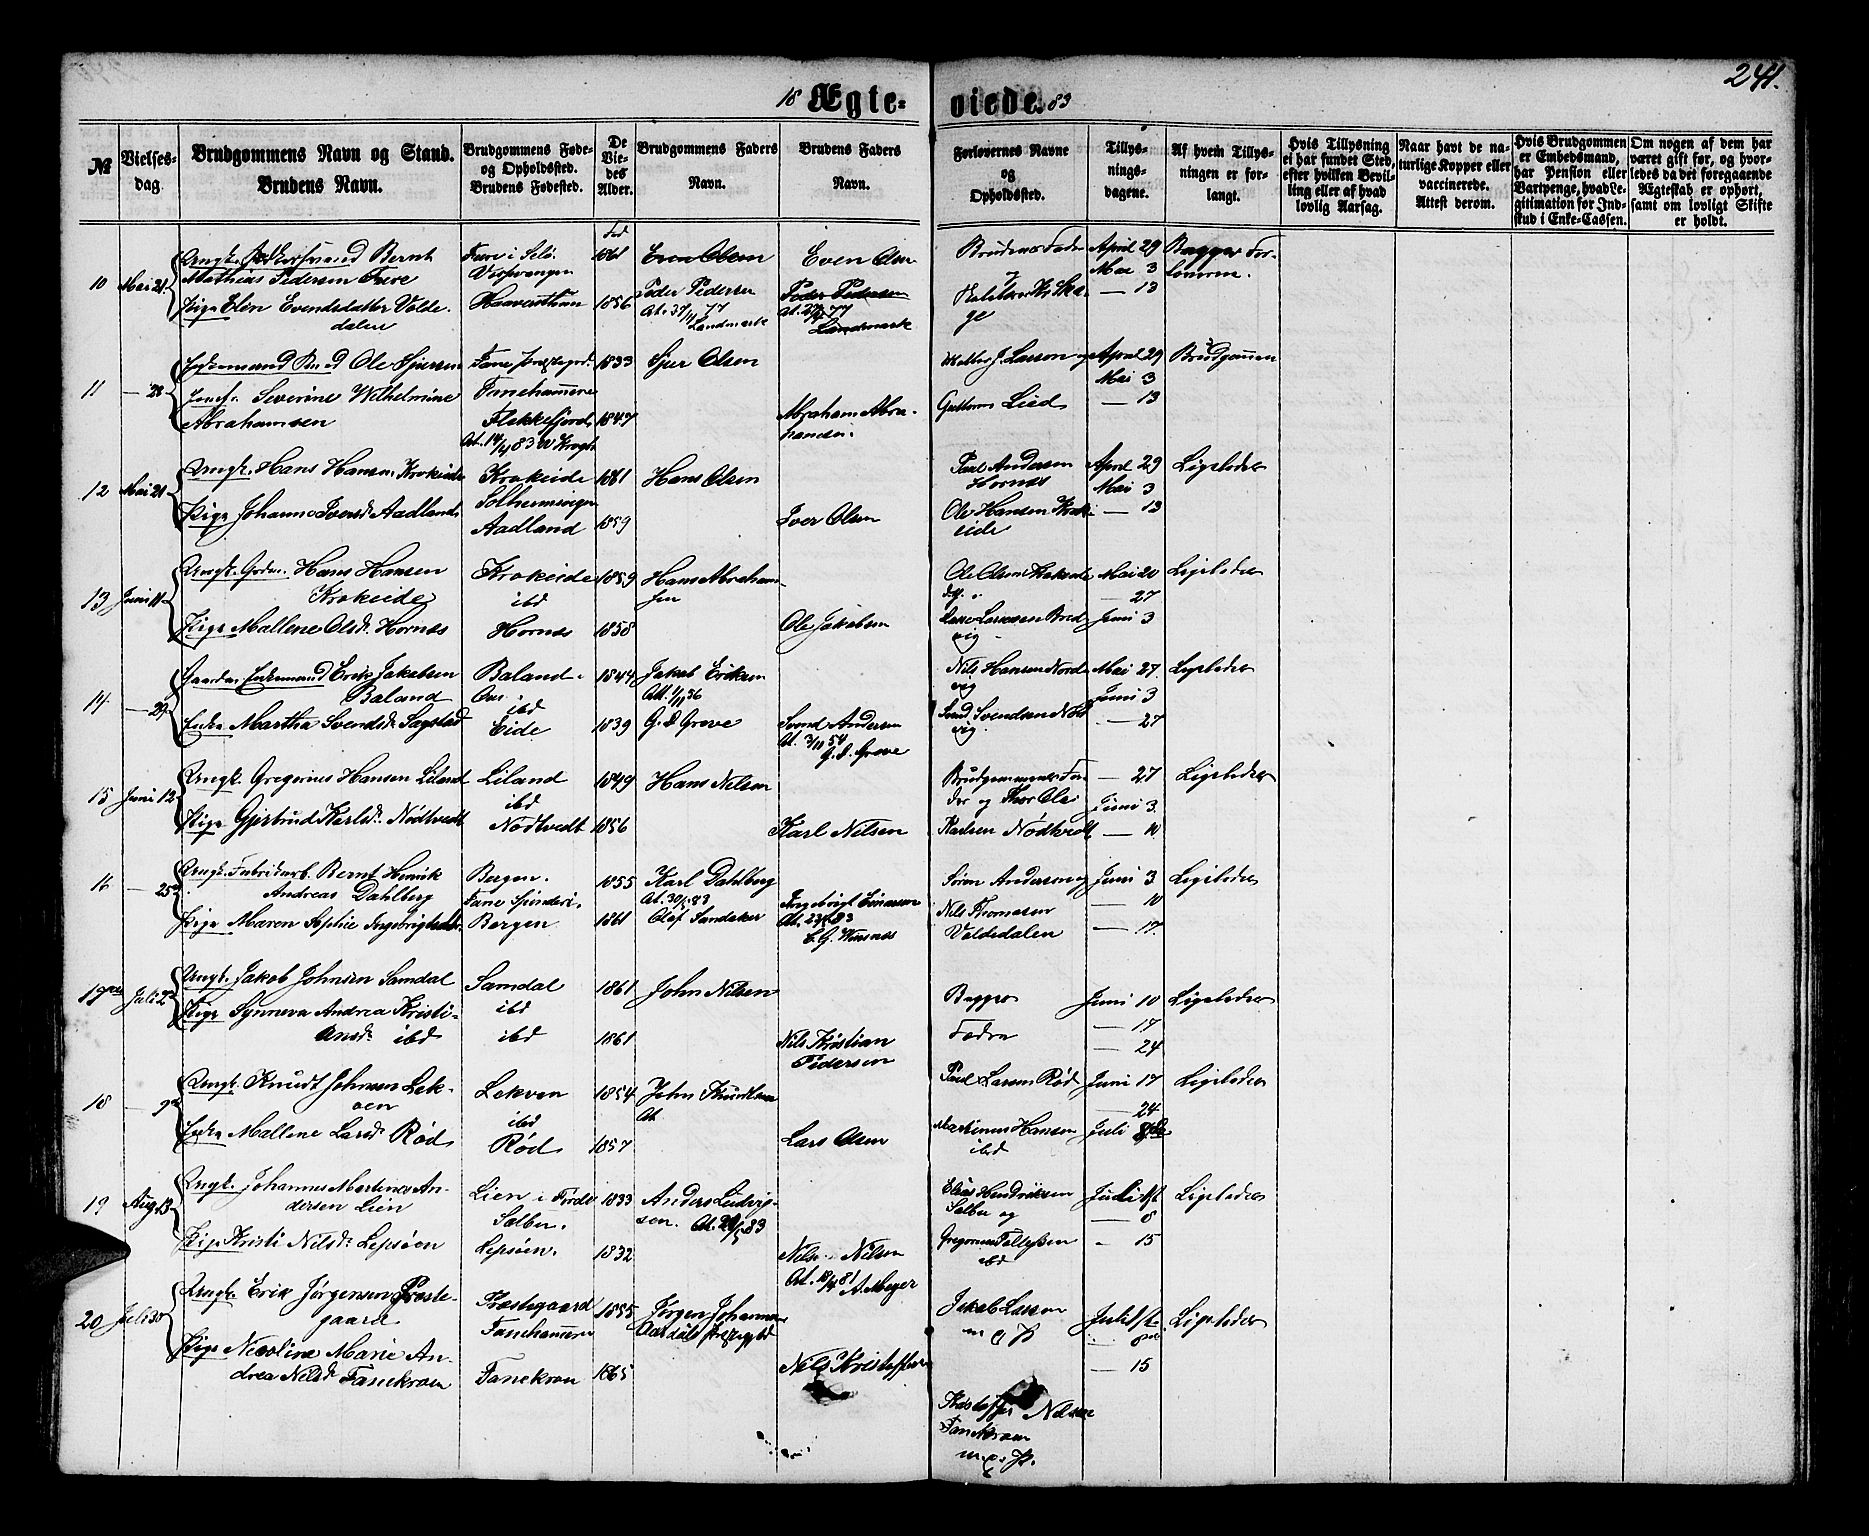 241.
18 Ægte- viede. 83
№
Vielses-
dag.
Brudgommens Navn og Stand.
Brudens Navn.
Brudgommens Føde-
og Opholdssted.
Brudens Fødested.
De
Vie-
des
Alder.
Brudgommens Faders
Navn.
Brudens Faders
Navn.
Forlovernes Navne
og
Opholdssted.
Tillys-
nings-
dagene.
Af hvem Tillys-
ningen er for-
langt.
Hvis Tillysning
ei har fundet Sted,
efter hvilken Bevil-
ling eller af hvad
lovlig Aarsag.
Naar havt de na-
turlige Kopper eller
vaccinerede.
Attest derom.
Hvis Brudgommen
er Embedsmand,
har Pension eller
Vartpenge, hvad Le-
gitimation for Ind-
skud i Enke-Cassen.
Om nogen af dem har
været gift før, og hvor-
ledes da det foregaaende
Ægteskab er ophørt,
samt om lovligt Skifte
er holdt.
10 Mai 21
Ungk. Bernt
Mathias Pedersen Fure
Pige Elen Evensdatter Volde-
dalen
1861
1856
Even Olsen
Peder Pedersen
Landmark
Even Olsen
Peder Pedersen
Landmark
Brudens Fader
April 29
Mai 3
— 13
Begges For-
lovere.
11 — 28
Enkemand Ole Sjursen
Severine Wilhelmine
Abrahamsen
Fanehammeren
Flekkefjord
At. 14/4 83 W Krogh
1833
1847
Sjur Olsen
Abraham Abra-
hamsen.
J. Larsen og
Guttorm Lied
April 29
Mai 3
— 13
Brudgommen
12 Mai 21
Ungk. Hans Hansen Krokeide
Pige Johanne Iversd. Aadland
Krokeide
Solheimsvigen
Aadland
1861
1859
Hans Olsen
Iver Olsen
Paul Andersen
Hornæs
Ole Hansen Krok-
eide
April 29
Mai 3
— 13
Ligeledes
13 Juni 11
Ungk. Hans Hansen
Krokeide
Pige Mallene Olsd. Hornæs
Krokeide
ibd
Hornæs
1859
1858
Hans Abraham-
sen
Ole Jakobsen
Ole Olsen Krokeide
Mai 20
— 27
Juni 3
Ligeledes
14 — 29
Enkemand Erik Jakobsen
Baland
Enke Martha Svendsd. Sagstad
Baland.
Os
ibd
Eide
1844
1839
Jakob Eriksen
G. D. Greve
Svend Andersen
At. 3/11 54
G. D. Greve
Nils Hansen Nord-
vig
Svendsen
Mai 27
Juni 3
— 27
Ligeledes
15 Juni 12
Ungk. Gregorius Hansen Liland
Pige Gjertrud Karlsd. Nødtvedt
Liland
ibd
Nødtvedt
1849
1856
Hans Nilsen
Karl Nilsen
Brudgommens Fa-
der og Ole
Karlsen Nødtvedt
— 27
Juni 3
— 10
Ligeledes
16 — 25
Ungk. Fabrikarb. Bernt Henrik
Andreas Dahlberg
Pige Maren Ingebrigtsdtr.
Bergen.
Fane Spinderi.
Bergen
1855
1861
Karl Dahlberg
At. 30/5 83
Olaf Sandaker
Ingebrigt Einarsen
At. 23/5 83
Søren Andersen og
Nils Thomasen
Voldedalen
Juni 3
— 10
— 17
Ligeledes
17 Juli 2
Ungk. Jakob Johnsen Samdal
Pige Synneva Andrea Kristi-
ansd. ibd
Samdal
ibd
ibd
1861
1861
John Nilsen
Nils Kristian
Pedersen
Begges
Fædre
Juni 10
— 17
— 24
Ligeledes
18 — 9
Ungk. Knudt Johnsen Lek-
ven
Enke Mallene Larsd. Rød
Lekven
ibd
Rød
1854
1857
John Knudsen
At.
Lars Olsen
Paul Larsen Rød
Martinus Hansen
ibd
Juni 17
— 24
Juli
Ligeledes
19 Aug. 13
Ungk. Johannes Martinus An-
dersen Lien
Pige Kristi Nilsd. Lepsøen
Lien i Førde
Sælber.
Lepsøen.
1833
1832
Anders Ludvig-
sen.
Nils Nilsen
A. Meyer
Elias Hendriksen
Sælber og
ibd
Juli 1st
— 8
— 15
Ligeledes
20 Juli 30
Ungk. Erik Jørgensen Præste-
gaard
Pige Nicoline Marie An-
drea Nilsd. Fanekroen
Præstegaard
Fanehammeren
Fanekroen
1855
1865
Jørgen Johannesen
Nils Kristoffersen
Jakob Larsen
Juli 1st
— 8
— 15
Ligeledes
Kristoffer Nilsen
Fanekroen